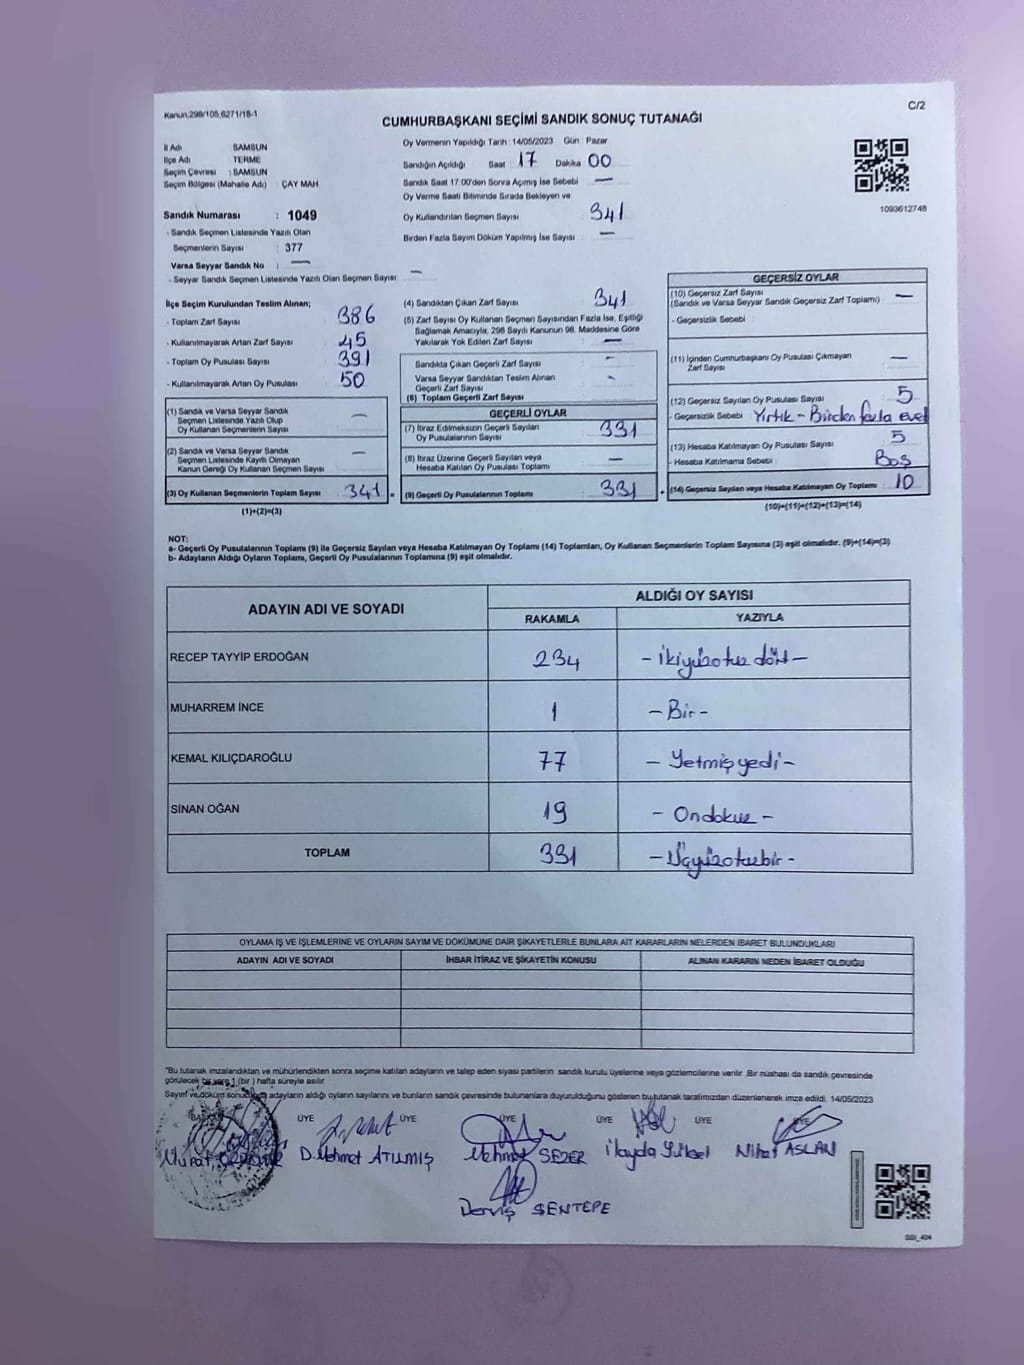 Kanun,298/105,6271/18-1
C/2
CUMHURBAŞKANI SEÇİMİ SANDIK SONUÇ TUTANAĞI
İl Adı : SAMSUN
İlçe Adı : TERME
Seçim Çevresi : SAMSUN
Seçim Bölgesi (Mahalle Adı) ÇAY MAH
Sandık Numarası : 1049
- Sandık Seçmen Listesinde Yazılı Olan
Seçmenlerin Sayısı : 377
Varsa Seyyar Sandık No : —
- Seyyar Sandık Seçmen Listesinde Yazılı Olan Seçmen Sayısı: —
Oy Vermenin Yapıldığı Tarih :14/05/2023 Gün : Pazar
Sandığın Açıldığı Saat : 17 Dakika : 00
Sandık Saat 17.00'den Sonra Açılmış İse Sebebi : —
Oy Verme Saati Bitiminde Sırada Bekleyen ve
Oy Kullandırılan Seçmen Sayısı : 341
Birden Fazla Sayım Döküm Yapılmış İse Sayısı : —
1093612748
İlçe Seçim Kurulundan Teslim Alınan;
- Toplam Zarf Sayısı : 386
- Kullanılmayarak Artan Zarf Sayısı : 45
- Toplam Oy Pusulası Sayısı : 391
- Kullanılmayarak Artan Oy Pusulası : 50
(1) Sandık ve Varsa Seyyar Sandık
Seçmen Listesinde Yazılı Olup
Oy Kullanan Seçmenlerin Sayısı : —
(2) Sandık ve Varsa Seyyar Sandık
Seçmen Listesinde Kayıtlı Olmayan
Kanun Gereği Oy Kullanan Seçmen Sayısı : —
(3) Oy Kullanan Seçmenlerin Toplam Sayısı : 341 =
(1)+(2)=(3)
(4) Sandıktan Çıkan Zarf Sayısı : 341
(5) Zarf Sayısı Oy Kullanan Seçmen Sayısından Fazla İse, Eşitliği
Sağlamak Amacıyla, 298 Sayılı Kanunun 98. Maddesine Göre
Yakılarak Yok Edilen Zarf Sayısı : —
Sandıkta Çıkan Geçerli Zarf Sayısı : -
Varsa Seyyar Sandıktan Teslim Alınan
Geçerli Zarf Sayısı : -
(6) Toplam Geçerli Zarf Sayısı
GEÇERLİ OYLAR
(7) İtiraz Edilmeksizin Geçerli Sayılan
Oy Pusulalarının Sayısı : 331
(8) İtiraz Üzerine Geçerli Sayılan veya
Hesaba Katılan Oy Pusulası Toplamı : —
(9) Geçerli Oy Pusulalarının Toplamı : 331 +
GEÇERSİZ OYLAR
(10) Geçersiz Zarf Sayısı
(Sandık ve Varsa Seyyar Sandık Geçersiz Zarf Toplamı) : —
- Geçersizlik Sebebi :
(11) İçinden Cumhurbaşkanı Oy Pusulası Çıkmayan
Zarf Sayısı : —
(12) Geçersiz Sayılan Oy Pusulası Sayısı : 5
- Geçersizlik Sebebi : Yırtık - Birden fazla evet
(13) Hesaba Katılmayan Oy Pusulası Sayısı : 5
- Hesaba Katılmama Sebebi : Boş
(14) Geçersiz Sayılan veya Hesaba Katılmayan Oy Toplamı : 10
(10)+(11)+(12)+(13)=(14)
NOT:
a- Geçerli Oy Pusulalarının Toplamı (9) ile Geçersiz Sayılan veya Hesaba Katılmayan Oy Toplamı (14) Toplamları, Oy Kullanan Seçmenlerin Toplam Sayısına (3) eşit olmalıdır. (9)+(14)=(3)
b- Adayların Aldığı Oyların Toplamı, Geçerli Oy Pusulalarının Toplamına (9) eşit olmalıdır.
ADAYIN ADI VE SOYADI
ALDIĞI OY SAYISI
RAKAMLA YAZIYLA
RECEP TAYYİP ERDOĞAN 234 - ikiyüzotuz dört -
MUHARREM İNCE 1 - Bir -
KEMAL KILIÇDAROĞLU 77 - Yetmişyedi -
SİNAN OĞAN 19 - Ondokuz -
TOPLAM 331 - Üçyüzotuzbir -
OYLAMA İŞ VE İŞLEMLERİNE VE OYLARIN SAYIM VE DÖKÜMÜNE DAİR ŞİKAYETLERLE BUNLARA AİT KARARLARIN NELERDEN İBARET BULUNDUKLARI
ADAYIN ADI VE SOYADI İHBAR İTİRAZ VE ŞİKAYETİN KONUSU ALINAN KARARIN NEDEN İBARET OLDUĞU
"Bu tutanak imzalandıktan ve mühürlendikten sonra seçime katılan adayların ve talep eden siyasi partilerin sandık kurulu üyelerine veya gözlemcilerine verilir. Bir nüshası da sandık çevresinde
görülecek bir yere 1 (bir ) hafta süreyle asılır
Sayım ve döküm sonucunda adayların aldığı oyların sayılarını ve bunların sandık çevresinde bulunanlara duyurulduğunu gösteren bu tutanak tarafımızdan düzenlenerek imza edildi. 14/05/2023
BAŞKAN ÜYE ÜYE ÜYE ÜYE ÜYE ÜYE
Murat D. Mehmet ATILMIŞ Mehmet SEZER İlayda Yüksel Nihat ASLAN
Derviş ŞENTEPE
SSI_404